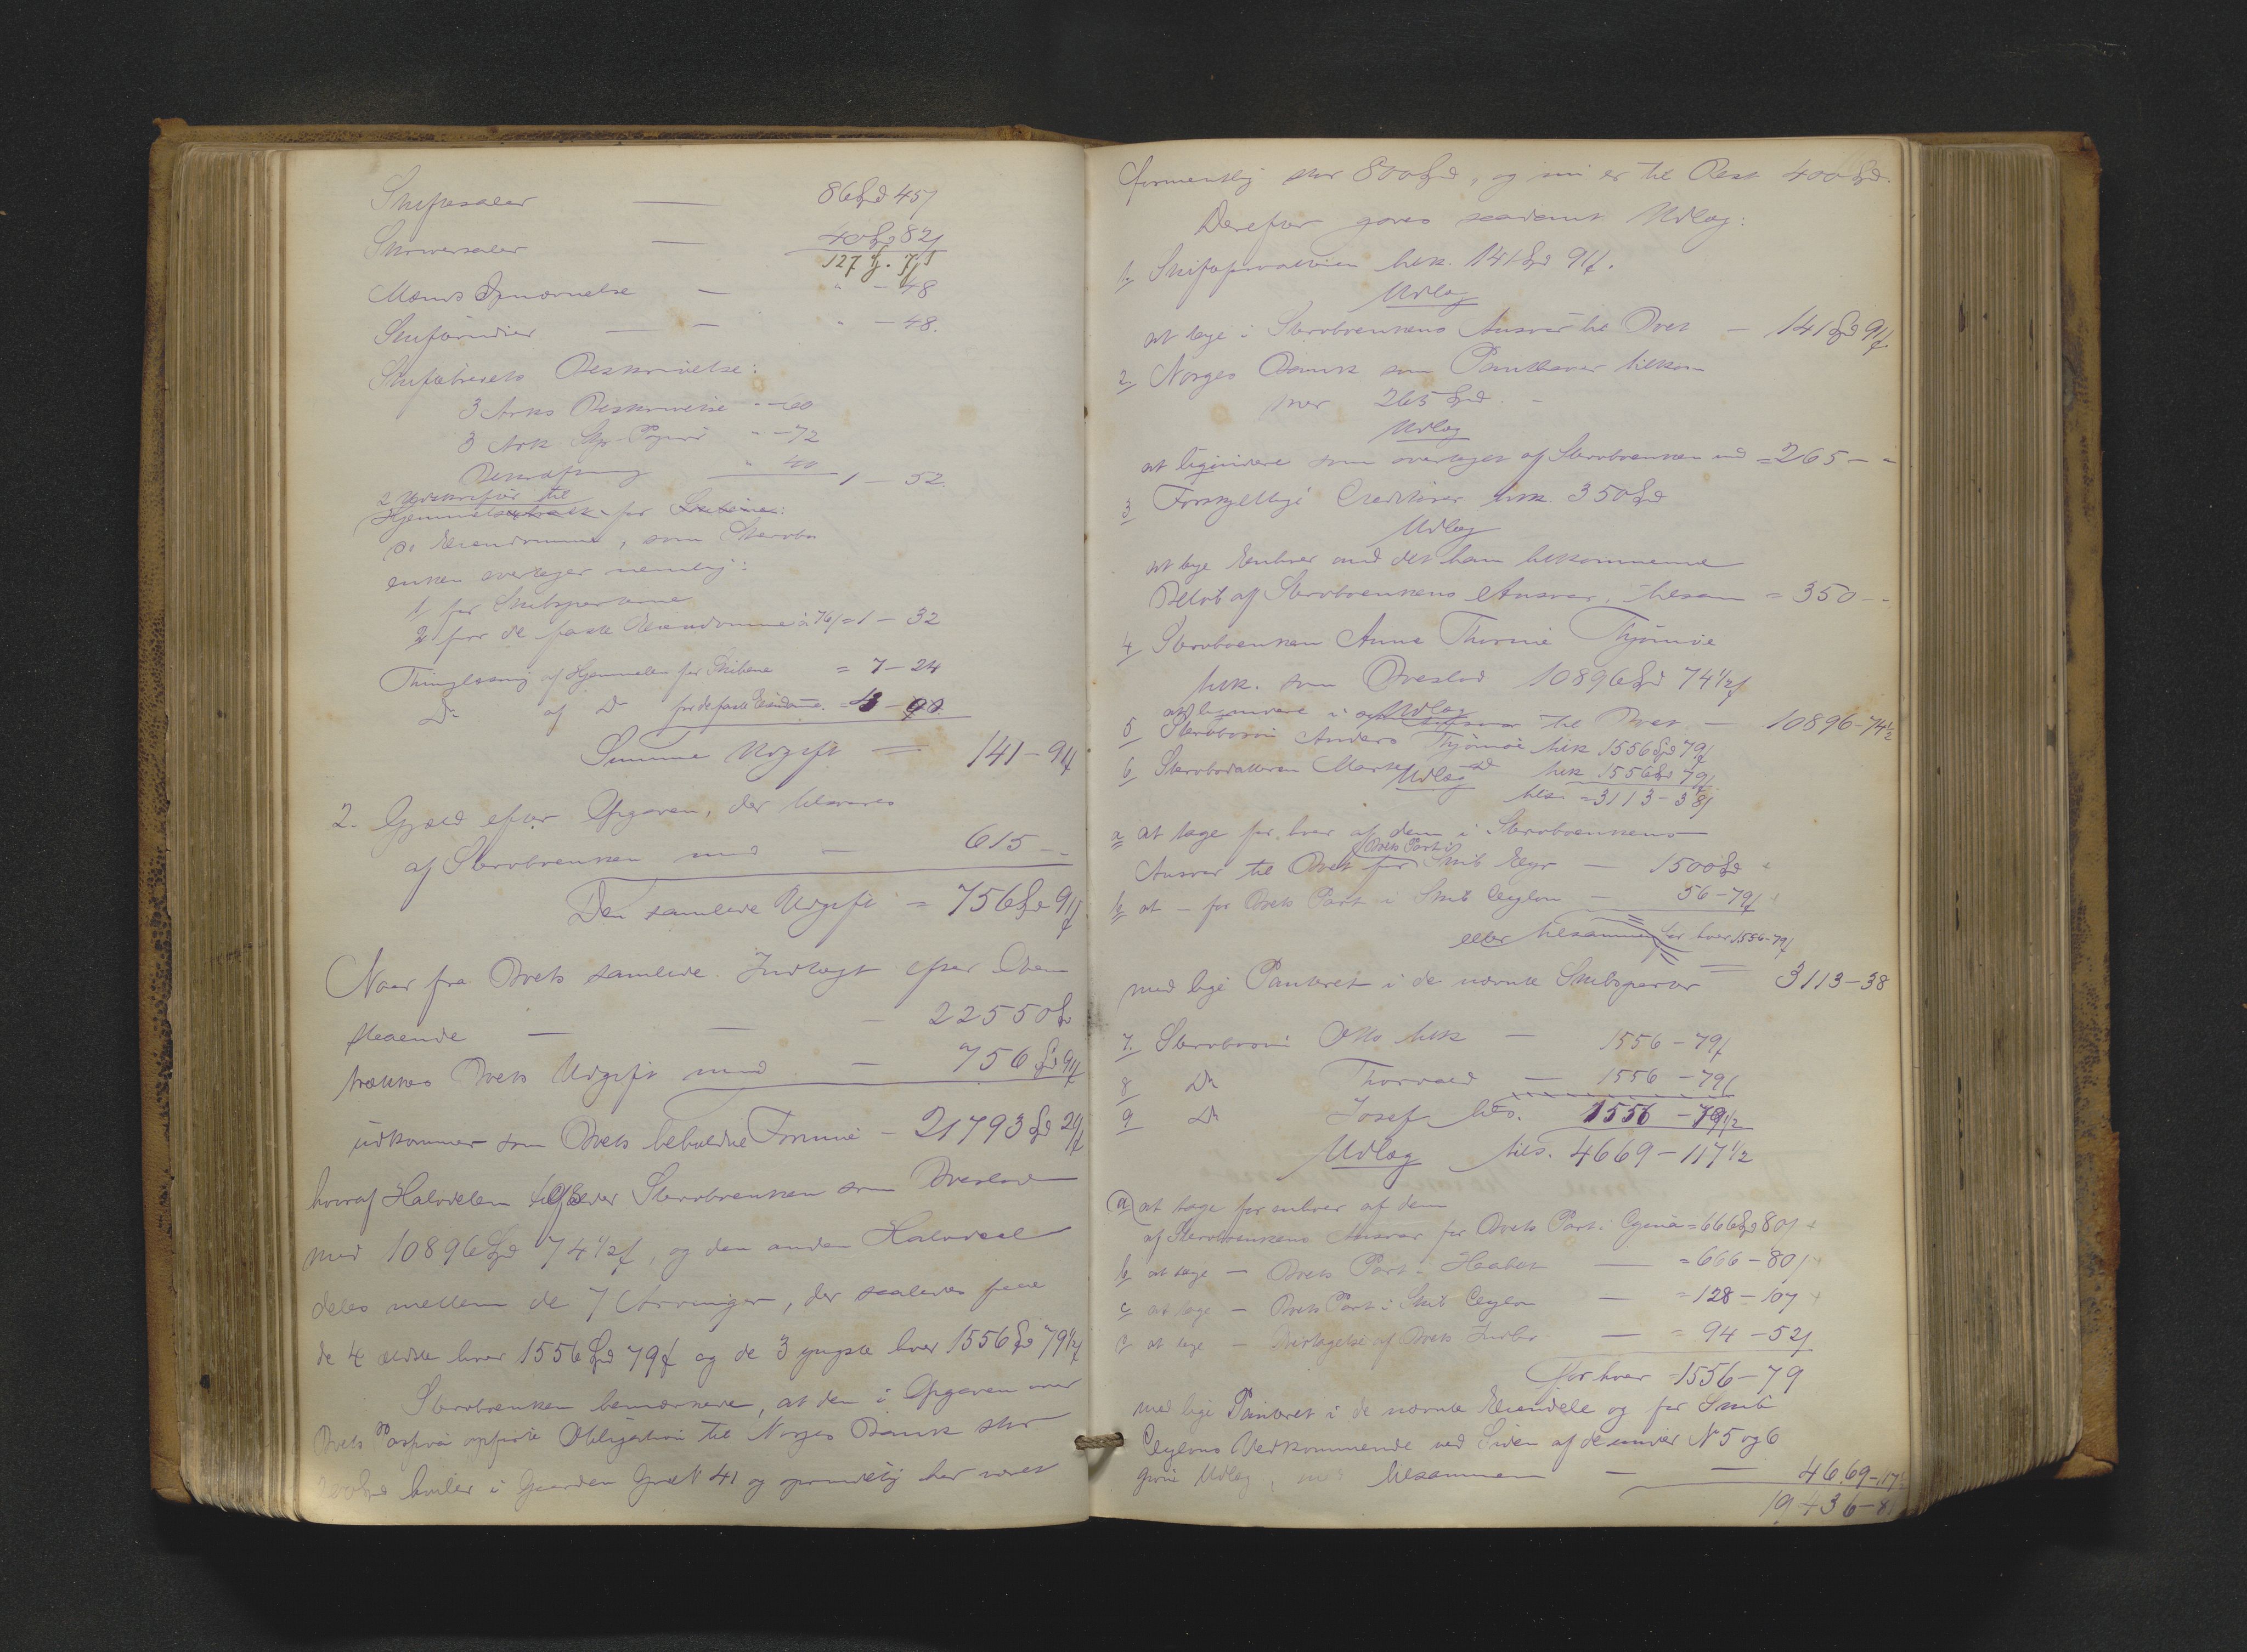 Skiftesaler — 86 Spd 45 ſ
Skriversaler — 40 Spd 82 ſ
127 Sp. 7 ſ
Mænds Opnævnelse — " - 48
" - 48.
Skiftebrevets Beskrivelse:
3 Arks Beskrivelse " - 60
3 Ark Stp. Papiir " - 72
Bekræftning " 40 1 - 52.
2 Udskrifter til
Hjemmel for
de Eiendomme, som Stervbo
enken overtager nemlig:
1 for Skibsparterne
2 for de faste Eiendomme à 76 ſ = 1 - 32
Thinglæsning af Hjemmelen for Skibene = 7 - 24
Do af Do for de faste Eiendomme. = 3 - 90.
Summa Udgift = 141 - 91 ſ
2. Gjæld efter Opgaven, der tilsvares
af Stervboenken med — 615 - -
Den samlede Udgift = 756 Spd 91 ſ
Naar fra Boets samlede Indtægt efter Oven
staaende — — — 22550 Spd
trækkes Boets Udgift med — 756 Spd 91 ſ
udkommer som Boets beholdne Formue - 21793 Spd 29 ſ
hvoraf Halvdelen tilfalder Stervboenken som Boeslod
med 10896 Spd 74 1/2 ſ, og den anden Halvdeel
deles mellem de 7 Arvinger, der saaledes faae
de 4 ældste hver 1556 Spd 79 ſ og de 3 yngste hver 1556 Spd 79 1/2 ſ
Stervboenken bemærkede, at den i Opgaven over
Boets Passiva opførte Obligation til Norges Bank stor
hviler i Gaarden No 41 og oprindelig har været
formentlig stor 800 Spd, og nu er til Rest 400 Spd.
Derefter gøres saadant Udlæg:
1, Skifteforvalteren tilk. 141 Spd 91 ſ.
Udlæg
at tage i Stervboenkens Ansvar til Boet — 141 Spd 91 ſ
2, Norges Bank som Panthaver tilkom
mer 265 Spd. -
Udlæg
at liqvidere som overtaget af Stervboenken med = 265 - -
3 Forskjellige Creditorer tilk. 350 Spd
Udlæg
at tage Enhver med det ham tilkommende
Beløb af Stervboenkens Ansvar, tilsam = 350 - -
4 Stervboenken Anne Thorine Thjømøe
tilk. som Boeslod 10896 Spd 74 1/2 ſ
Udlæg
at liqvidere i Ansvar til Boet — 10896 - 74 1/2
5 Stervbosøn Anders Thjømøe tilk 1556 Spd 79 ſ
6 Stervbodatteren Marthe do tilk 1556 Spd 79 ſ
Udlæg tils. = 3113 - 38 ſ
a at tage for hver af dem i Stervboenkens
Boets Part i
Ansvar til Boet for Skib — 1500 Spd
b at — for Boets Part i Skib Ceylon — 56 - 79 ſ
eller tilsammen for hver 1556 - 79 ſ
med lige Panteret i de nævnte Skibsparter = 3113 - 38
7. Stervbosøn Otto tilk — 1556 - 79 ſ
8 Do Thorvald — 1556 - 79 ſ
9 Do Josef tils. 1556 - 79 1/2
Udlæg tils. 4669 - 117 1/2
a) at tage for enhver af dem
af Stervboenkens Ansvar for Boets Part i = 666 Spd 80 ſ
b at tage — Boets Part i Haabet — = 666 - 80 ſ
c at tage — Boets Part i Skib Ceylon — = 128 - 107
d at tage — Overtagelse af Boets Indbo — = 94 - 52 ſ
for hver - 1556 - 79
med lige Panteret i de nævnte Eiendele og for Skib
Ceylons Vedkommende ved Siden af de under No 5 og 6
givne Udlæg, med tilsammen — — 4669 - 117 1/2
19436 - 8